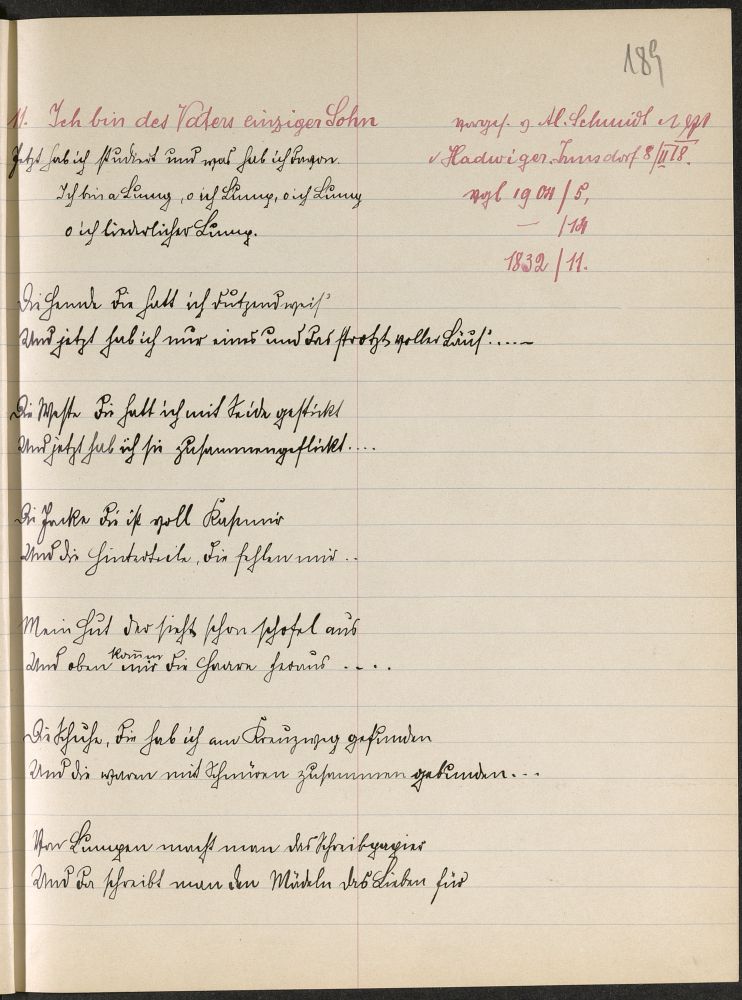 189
11. Ich bin des Vaters einziger Sohn
Jetzt hab ich studiert und was hab ich davon.
Ich bin a Lump, o ich Lump, o ich Lump
o ich liederlicher Lump.
vorges. v Al. Schmidt
v Hadwiger. Innsdorf 8/II 18.
vgl 1904/5,
— /14
1832/11.
Die Hemde die hatt ich dutzendweis'
Und jetzt hab ich nur eines und das strotzt voller Läus'....
Die Weste die hatt ich mit Seide gestickt
Und jetzt hab ich sie zusammengeflickt....
Die Jacke die ist voll Kasimir
Und die Hinterteile, die fehlen mir..
Mein Hut der sieht schon schofel aus
Und oben komm mir die Haare heraus ....
Die Schuhe, die hab ich am Kreuzweg gefunden
Und die waren mit Schnüren zusammen gebunden...
Von Lumpen macht man das Schreibpapier
Und da schreibt man den Mädeln das Lieben für